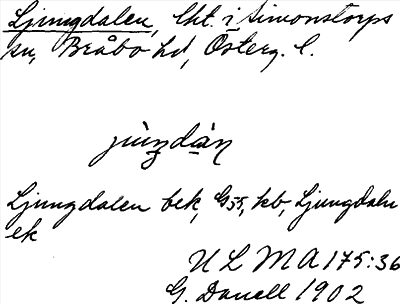 Ljungdalen, lht. i Simonstorps
sn, Bråbo hd, Österg. l.
jùŋdàn
Ljungdalen bek, G55, kb, Ljungdalen
ek
ULMA 175:36
G. Danell 1902